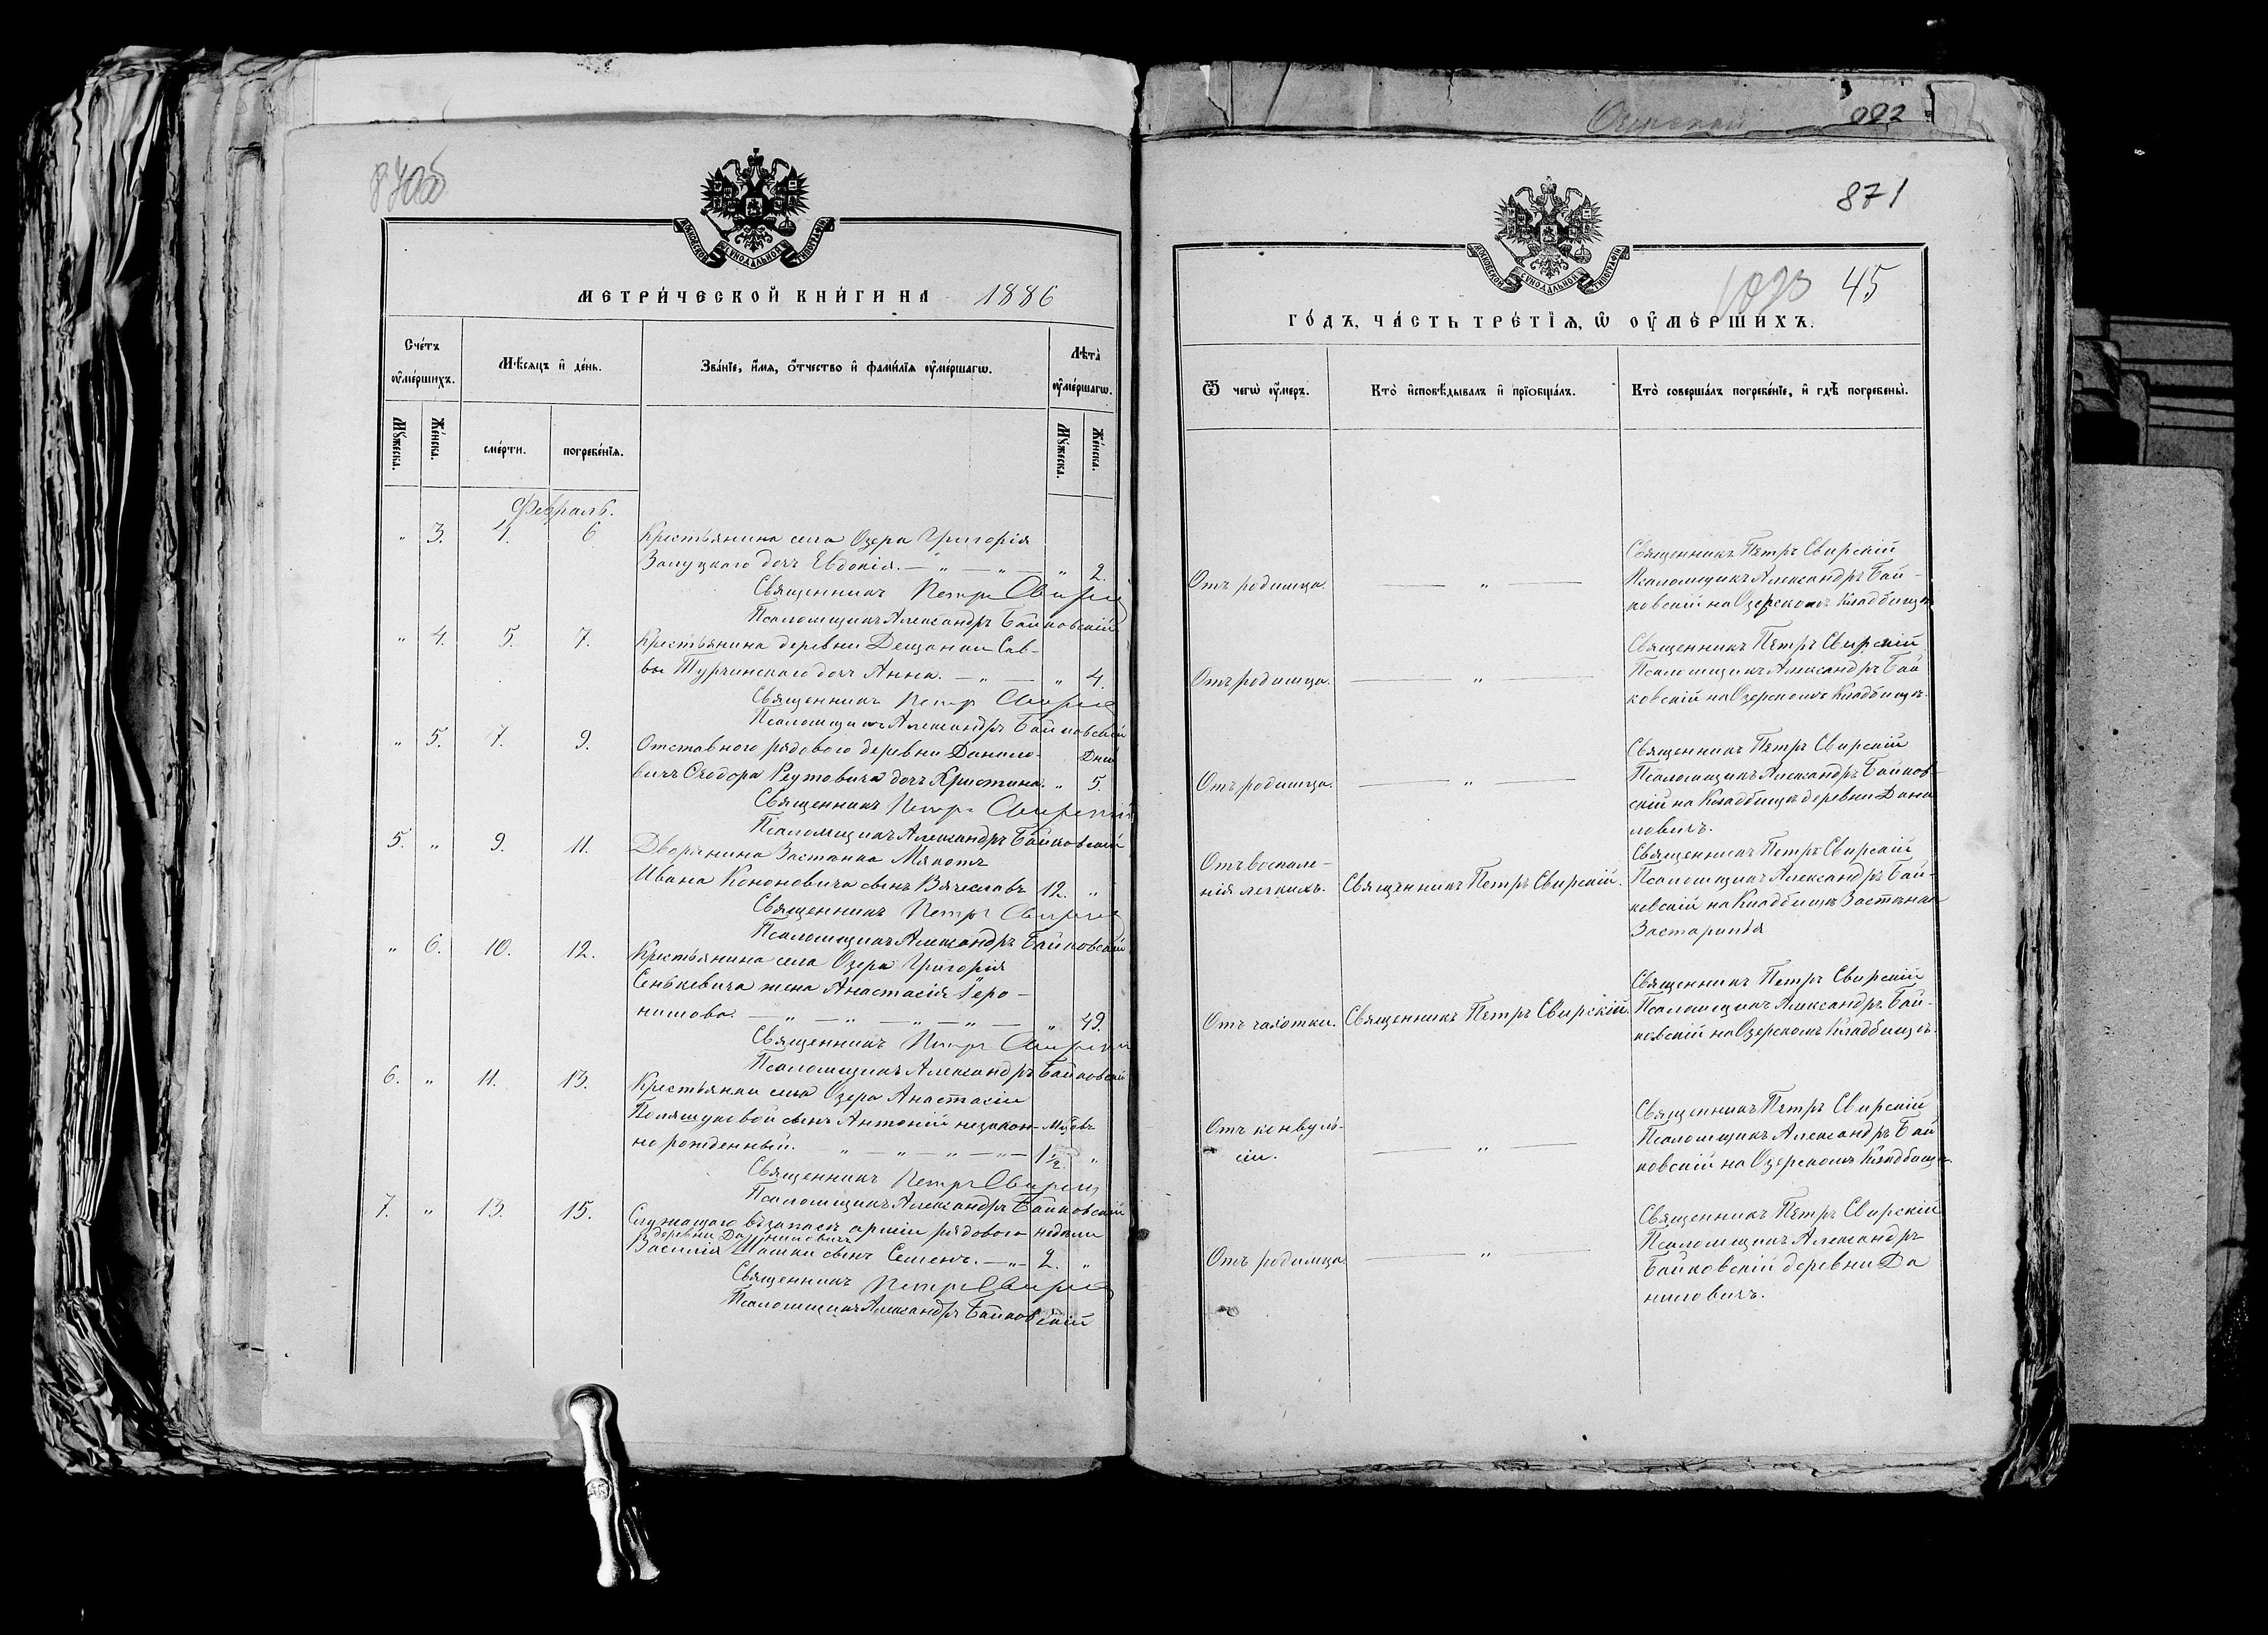 870об
МОСКОВСКОЙ СѴНОДАЛЬНОЙ ТИПОГРАФІИ
МЕТРИ́ЧЕСКОЙ КНИ́ГИ НА 1886
Сче́тъ ᲂу҆ме́ршихъ.
Мѣ́сяцъ и҆ де́нь.
Зва́нїе, и҆́мѧ, ѻ҆́тчество и҆ фами́лїѧ ᲂу҆ме́ршагѡ.
Лѣта̀ ᲂу҆ме́ршагѡ.
Мꙋ́жеска.
Же́нска.
сме́рти.
погребе́нїѧ.
Мꙋ́жеска.
Же́нска.
Февраль.
" 3. 4. 6 Крестьянина села Озера Григорія
Залуцкаго дочь Евдокія. — " — " — " 2.
Священникъ Петръ Свирскій
Псаломщикъ Александръ Байковскій
" 4. 5. 7. Крестьянина деревни Дещанки Сав-
вы Турчинскаго дочь Анна. — " — " 4.
Священникъ Петръ Свирскій
Псаломщикъ Александръ Байковскій
" 5. 7. 9. Отставного рядового деревни Данило- Дни
вичъ Ѳеодора Реутовича дочь Христина. " 5.
Священникъ Петръ Свирскій
Псаломщикъ Александръ Байковскій
5. " 9. 11. Дворянина Застѣнка Мякотъ
Ивана Кононовича сынъ Вячеславъ 12. "
Священникъ Петръ Свирскій
Псаломщикъ Александръ Байковскій
" 6. 10. 12. Крестьянина села Озера Григорія
Сенькевича жена Анастасія Іеро-
нимова. — " — " — " — " — " 49.
Священникъ Петръ Свирскій
Псаломщикъ Александръ Байковскій
6. " 11. 13. Крестьянки села Озера Анастасіи
Полящуковой сынъ Антоній незакон- Мѣс.
но рожденный. " — " — " — " — 1 1/2. "
Священникъ Петръ Свирскій
Псаломщикъ Александръ Байковскій
7. " 13. 15. Служащаго въ запасѣ арміи рядового недѣли
деревни Даниловичъ
Василія Шашки сынъ Семенъ. — " — 2. "
Священникъ Петръ Свирскій
Псаломщикъ Александръ Байковскій
092
871
МОСКОВСКОЙ СѴНОДАЛЬНОЙ ТИПОГРАФІИ
45
ГО́ДЪ, ЧА́СТЬ ТРЕ́ТЇѦ, Ѡ҆ ОУ҆МЕ́РШИХЪ.
Ѿ чегѡ̀ ᲂу҆́меръ.
Кто̀ и҆сповѣ́дывалъ и҆ прїѻбща́лъ.
Кто̀ соверша́лъ погребе́нїе, и҆ гдѣ̀ погребены̀.
Отъ родимца. — " — Священникъ Петръ Свирскій
Псаломщикъ Александръ Бай-
ковскій на Озерскомъ Кладбищѣ
Отъ родимца. — " — Священникъ Петръ Свирскій
Псаломщикъ Александръ Бай
ковскій на Озерскомъ Кладбищѣ.
Отъ родимца. — " — Священникъ Петръ Свирскій
Псаломщикъ Александръ Байков-
скій на Кладбищѣ деревни Дани
ловичъ.
Отъ воспале-
нія легкихъ. Священникъ Петръ Свирскій. Священникъ Петръ Свирскій
Псаломщикъ Александръ Бай-
ковскій на Кладбищѣ Застѣнка
Застаринья
Отъ чахотки. Священникъ Петръ Свирскій. Священникъ Петръ Свирскій
Псаломщикъ Александръ Бай-
ковскій на Озерскомъ Кладбищѣ.
Отъ конвуль-
сіи. — " — Священникъ Петръ Свирскій
Псаломщикъ Александръ Бай
ковскій на Озерскомъ Кладбищѣ.
Отъ родимца — " — Священникъ Петръ Свирскій
Псаломщикъ Александръ
Байковскій деревни Да
ниловичъ.